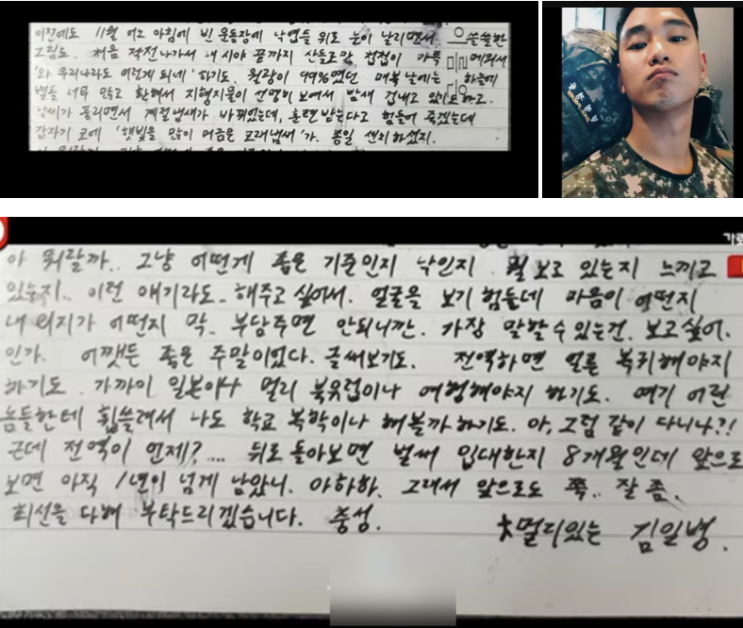 이런에도 11월 어느 아침에 빈 운동장에 낙엽들 위로 눈이 날리면서 쓸쓸한
그림도. 처음 작전나가서 내 시야 끝까지 산들로만 첩첩이 가득 메워서
'와 우리나라도 이렇게 되네' 하기도. 월광이 99%였던 매복날에는 하늘에
별들 너무 많고 환해서 지형지물이 선명히 보여서 밤새 겁내고 있기도하고.
날씨가 풀리면서 계절냄새가 바뀌었는데, 훈련받는다고 힘들어 죽겠는데
갑자기 코에 '햇빛을 많이 머금은 모래냄새'가. 종일 센치하셨지.
아 뭐랄까.. 그냥 어떤게 좋은 기준인지 낙인지 뭘 보고 있는지 느끼고
있는지.. 이런 얘기라도.. 해주고 싶어서. 얼굴을 보기 힘들데 마음이 어떤지
내 의지가 어떤지 막.. 부담주면 안되니깐. 가장 말할수 있는건. 보고싶어.
인가. 어쨋든 좋은 주말이었다. 글써보기도. 전역하면 얼른 복귀해야지
하기도. 가까이 일본이나 멀리 북유럽이나 여행해야지 하기도. 여기 어린
놈들한테 휩쓸려서 나도 학교 복학이나 해볼까 하기도. 아, 그럼 같이 다니나?!
근데 전역이 언제?.... 뒤로 돌아보면 벌써 입대한지 8개월인데 앞으로
보면 아직 1년이 넘게 남았니. 아하하. 그래서 앞으로도 쭉.. 잘 좀.
최선을 다해 부탁드리겠습니다. 충성.
멀리있는 김일병.